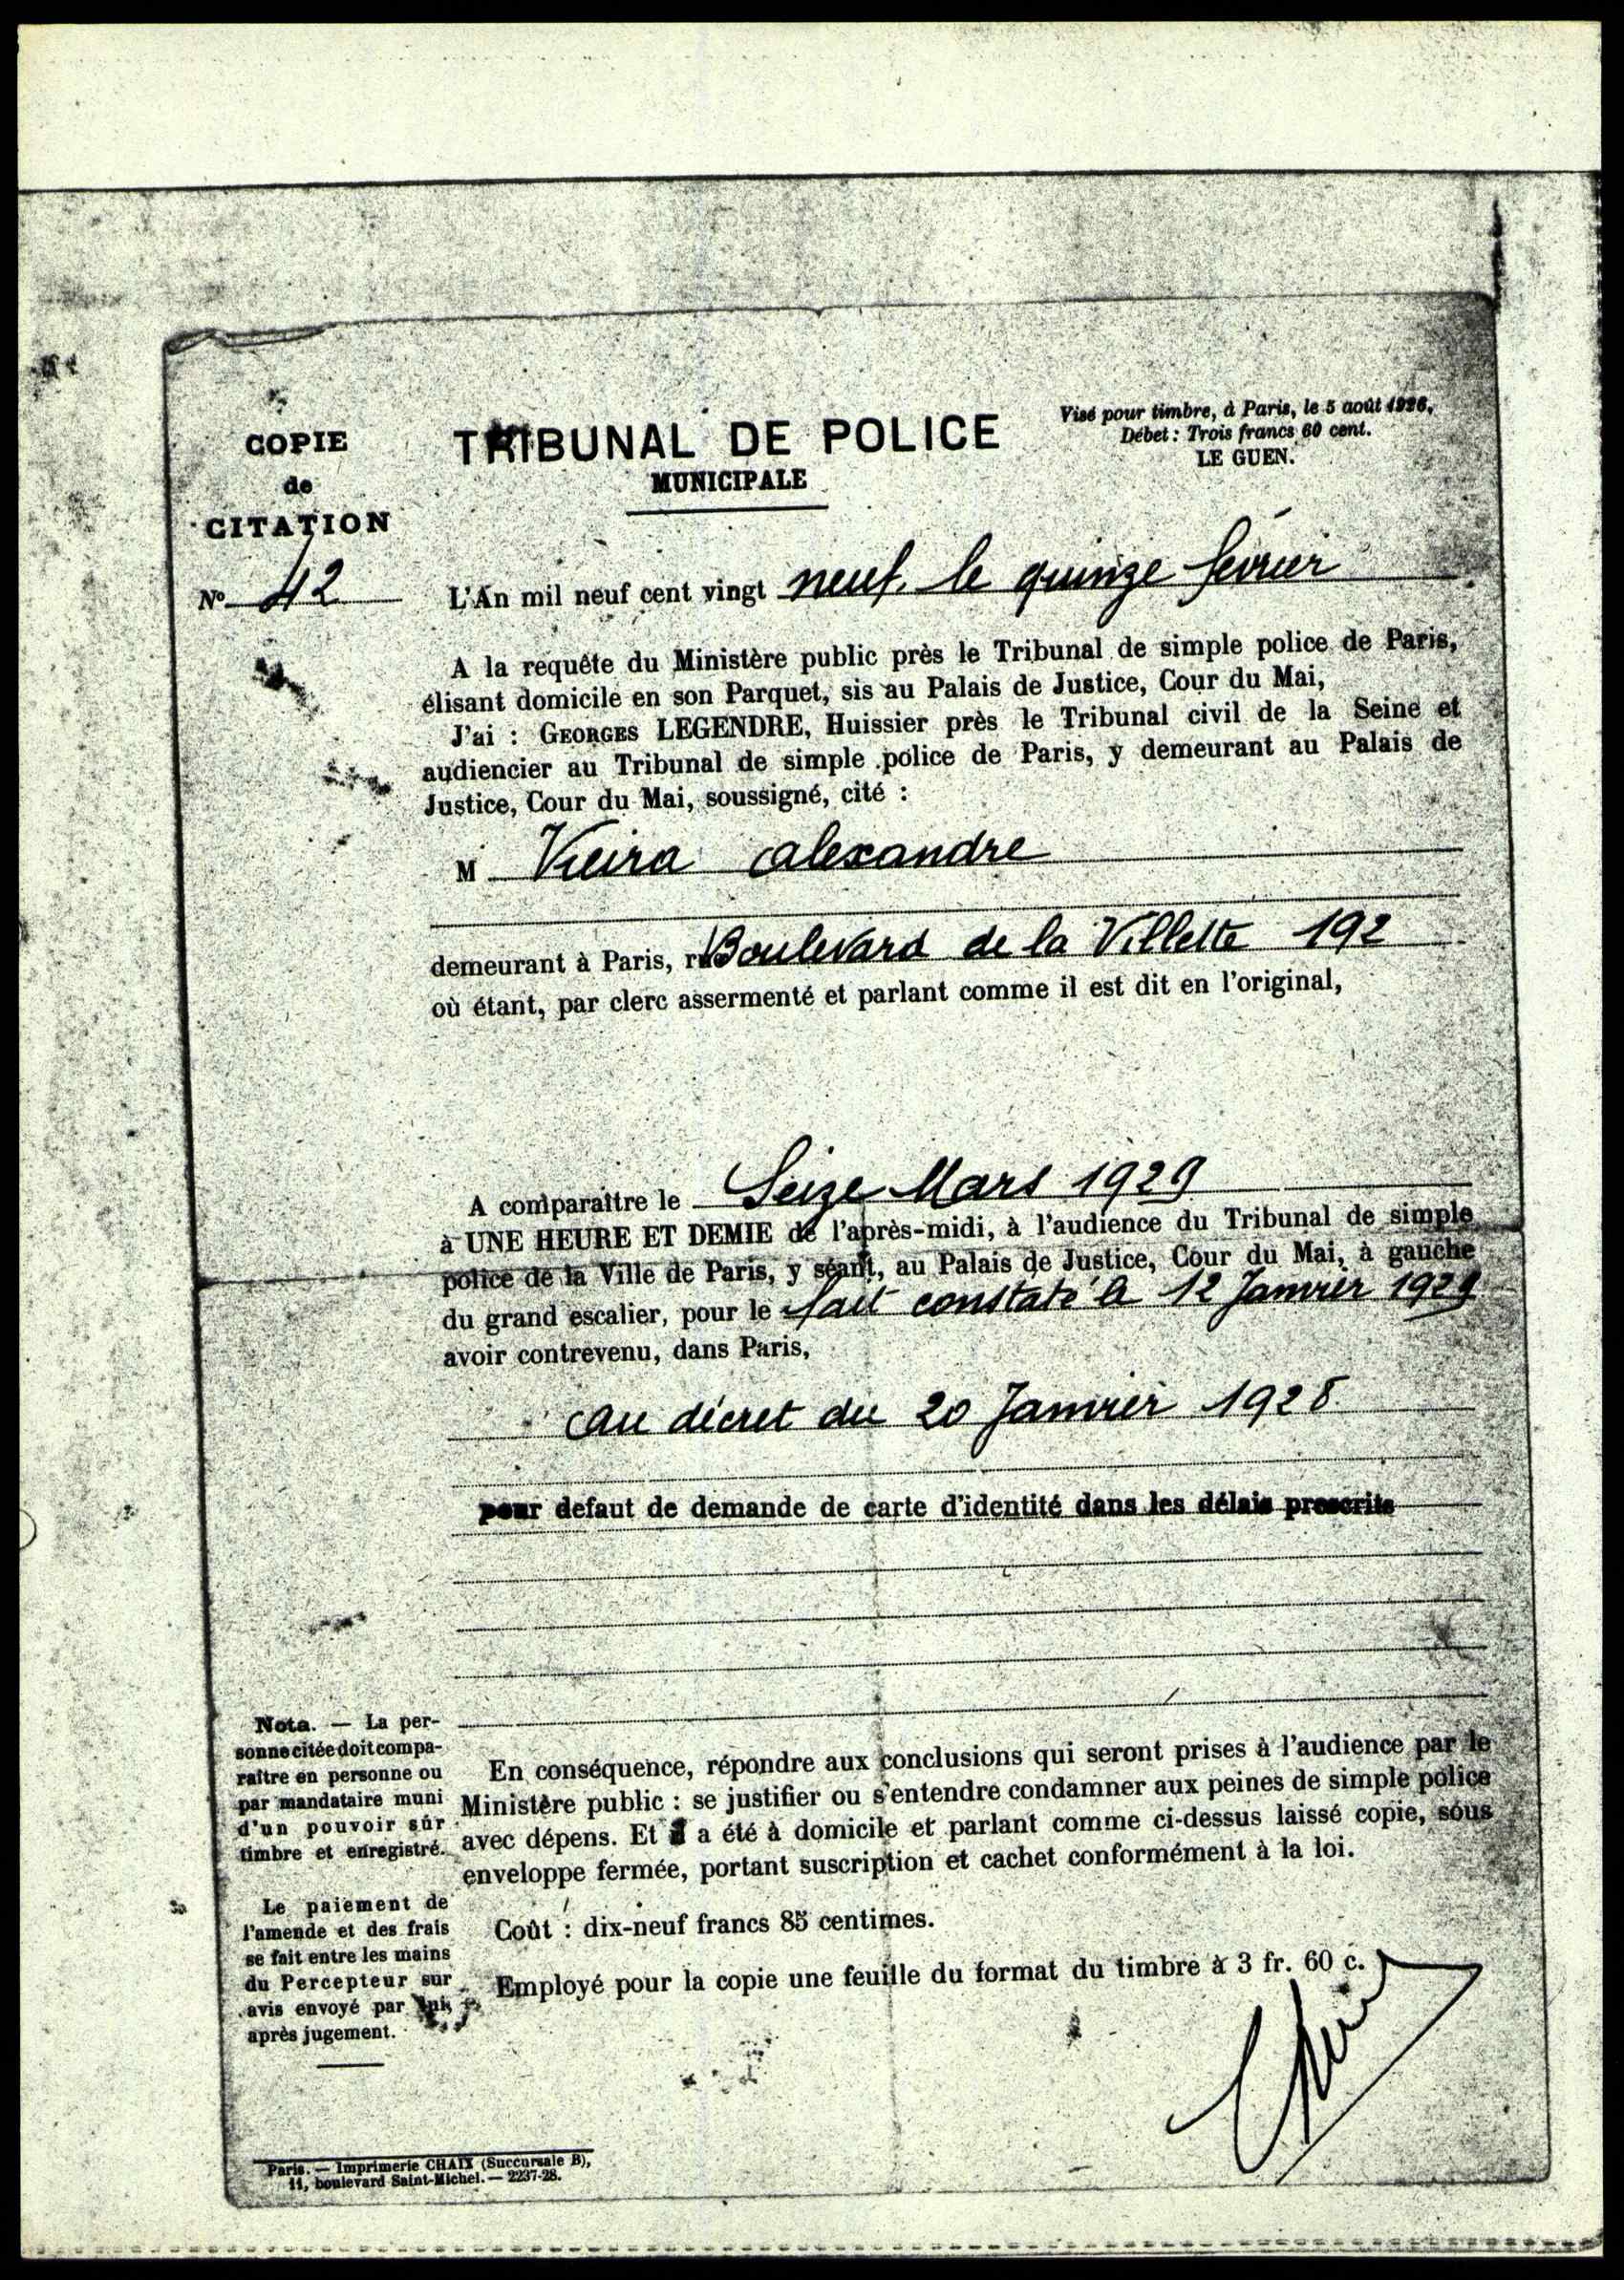 COPIE
de
CITATION
Nº 42
TRIBUNAL DE POLICE
MUNICIPALE
Visé pour timbre, à Paris, le 5 août 1926,
Débet : Trois francs 60 cent.
LE GUEN.
L'An mil neuf cent vingt neuf, le quinze février
A la requête du Ministère public près le Tribunal de simple police de Paris,
élisant domicile en son Parquet, sis au Palais de Justice, Cour du Mai,
J'ai : GEORGES LEGENDRE, Huissier près le Tribunal civil de la Seine et
audiencier au Tribunal de simple police de Paris, y demeurant au Palais de
Justice, Cour du Mai, soussigné, cité :
M Vieira alexandre
demeurant à Paris, rue Boulevard de la Villette 192
où étant, par clerc assermenté et parlant comme il est dit en l'original,
A comparaître le Seize Mars 1929
à UNE HEURE ET DEMIE de l'après-midi, à l'audience du Tribunal de simple
police de la Ville de Paris, y séant, au Palais de Justice, Cour du Mai, à gauche
du grand escalier, pour le fait constaté le 12 Janvier 1929
avoir contrevenu, dans Paris,
au décret du 20 Janvier 1928.
pour defaut de demande de carte d'identité dans les délais prescrits
Nota. — La per-
sonne citée doit compa-
raître en personne ou
par mandataire muni
d'un pouvoir sur
timbre et enregistré.
Le paiement de
l'amende et des frais
se fait entre les mains
du Percepteur sur
avis envoyé par
après jugement.
En conséquence, répondre aux conclusions qui seront prises à l'audience par le
Ministère public : se justifier ou s'entendre condamner aux peines de simple police
avec dépens. Et il a été à domicile et parlant comme ci-dessus laissé copie, sous
enveloppe fermée, portant suscription et cachet conformément à la loi.
Coût : dix-neuf francs 85 centimes.
Employé pour la copie une feuille du format du timbre à 3 fr. 60 c.
Paris. — Imprimerie CHAIX (Succursale B),
11, boulevard Saint-Michel. — 2237-28.